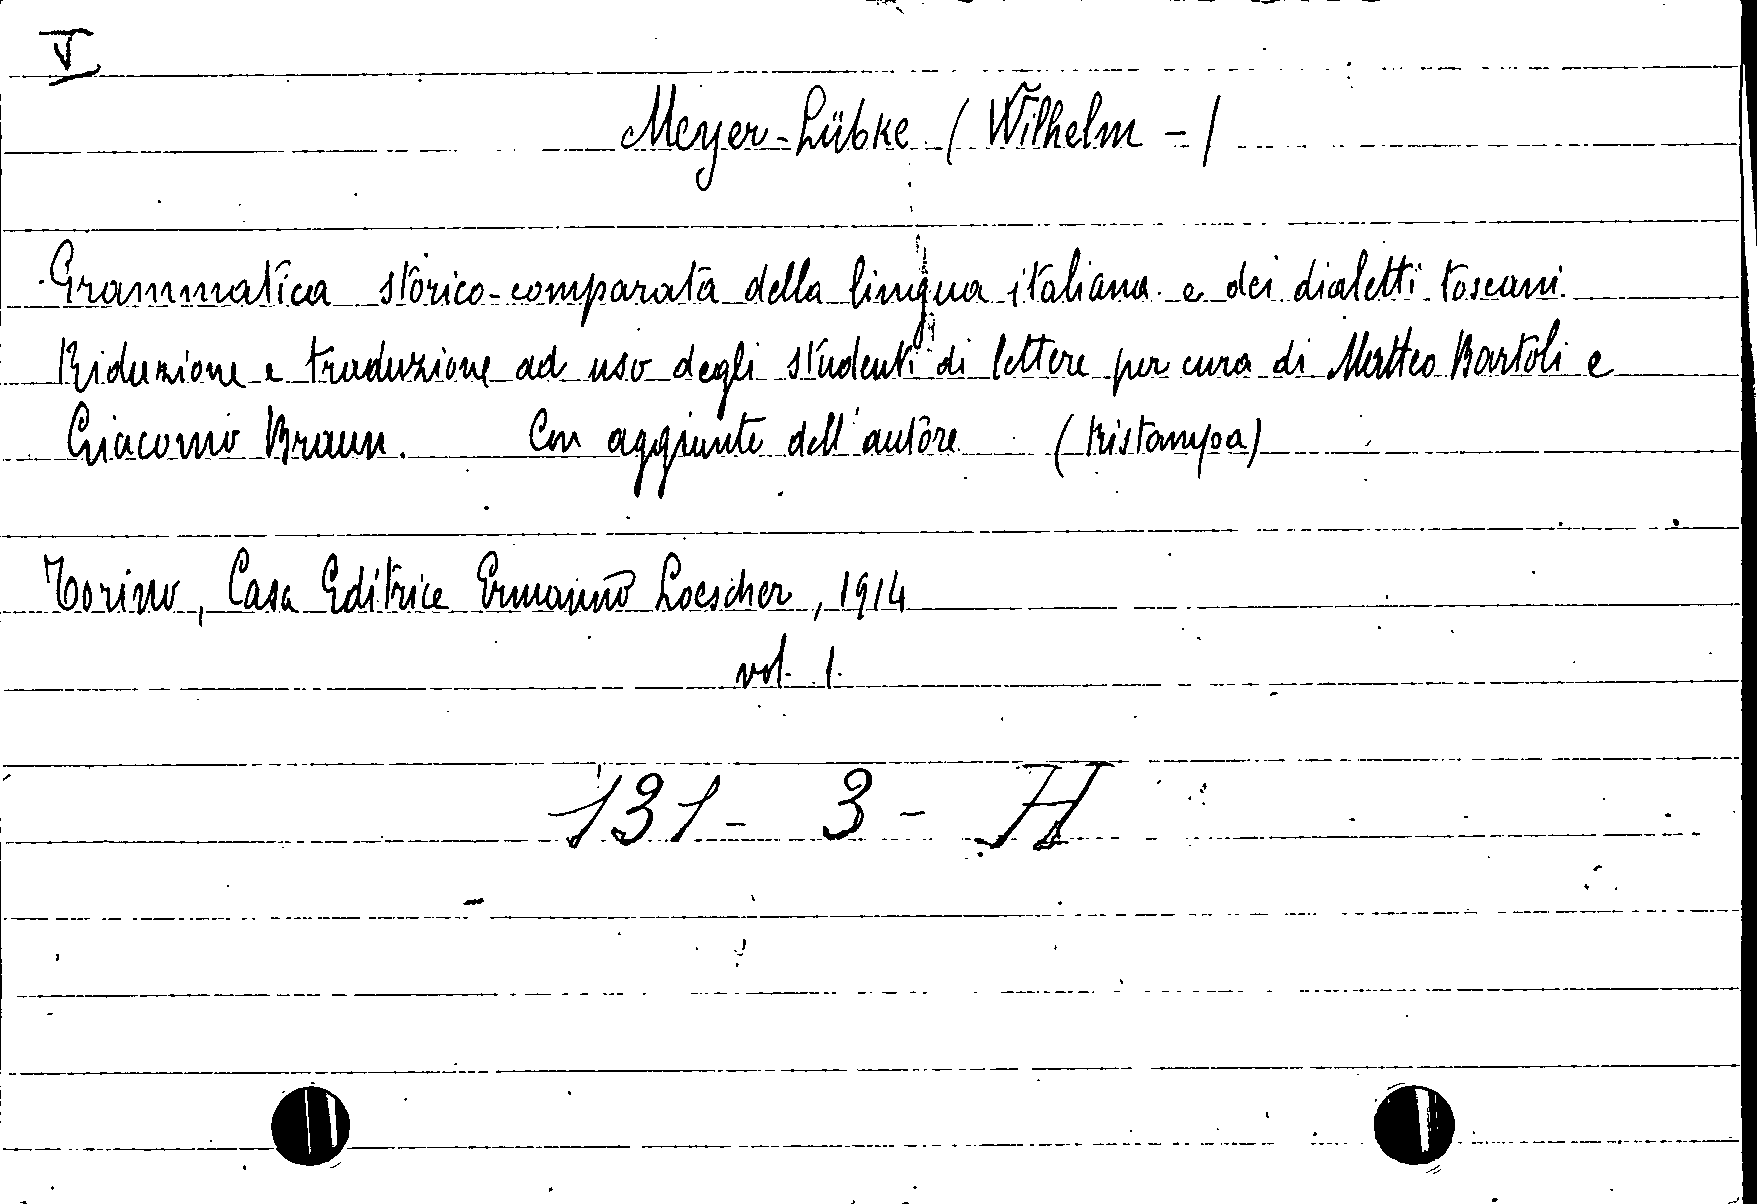 V
Meyer-Lübke (Wilhelm -)
Grammatica storico-comparata della lingua italiana e dei dialetti toscani.
Riduzione e traduzione ad uso degli studenti di lettere per cura di Matteo Bartoli e
Giacomo Braun. Con aggiunte dell'autore (Ristampa)
Torino, Casa Editrice Ermanno Loescher, 1914
vol. 1.
131- 3- H